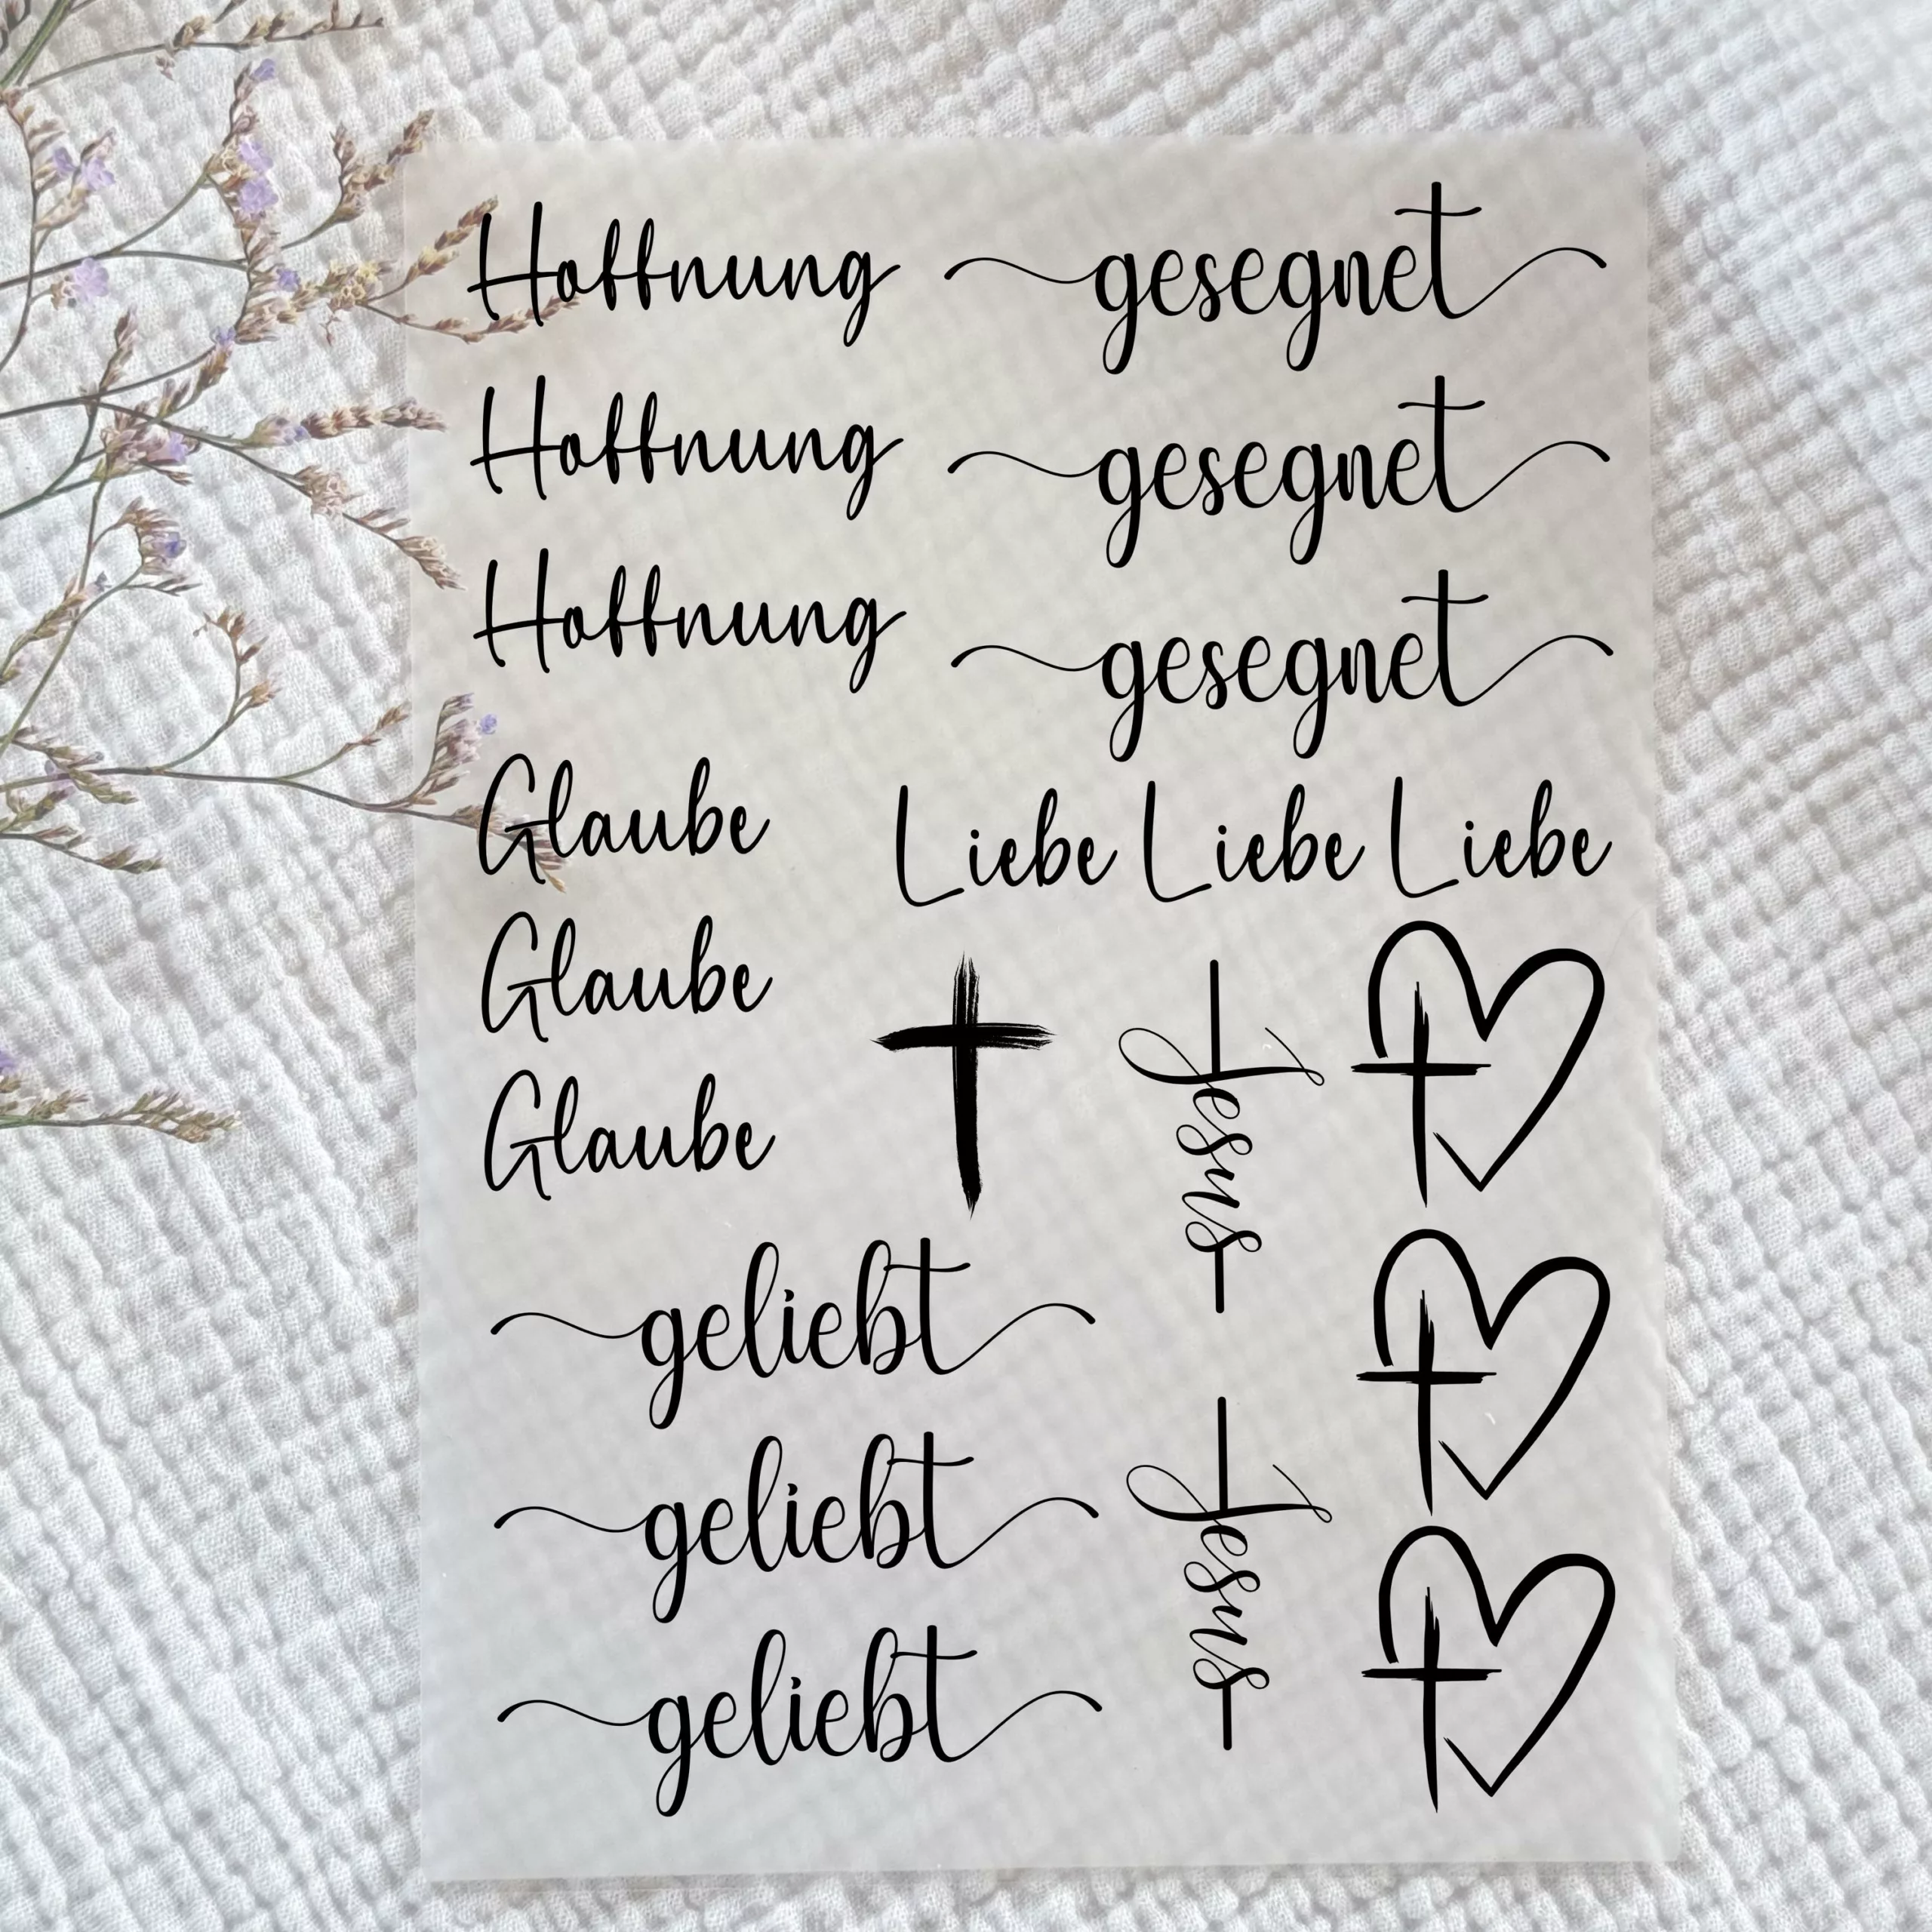 Hoffnung
gesegnet
Hoffnung
gesegnet
Hoffnung
gesegnet
Glaube
Liebe Liebe Liebe
Glaube
Glaube
Jesus
geliebt
geliebt
Jesus
geliebt